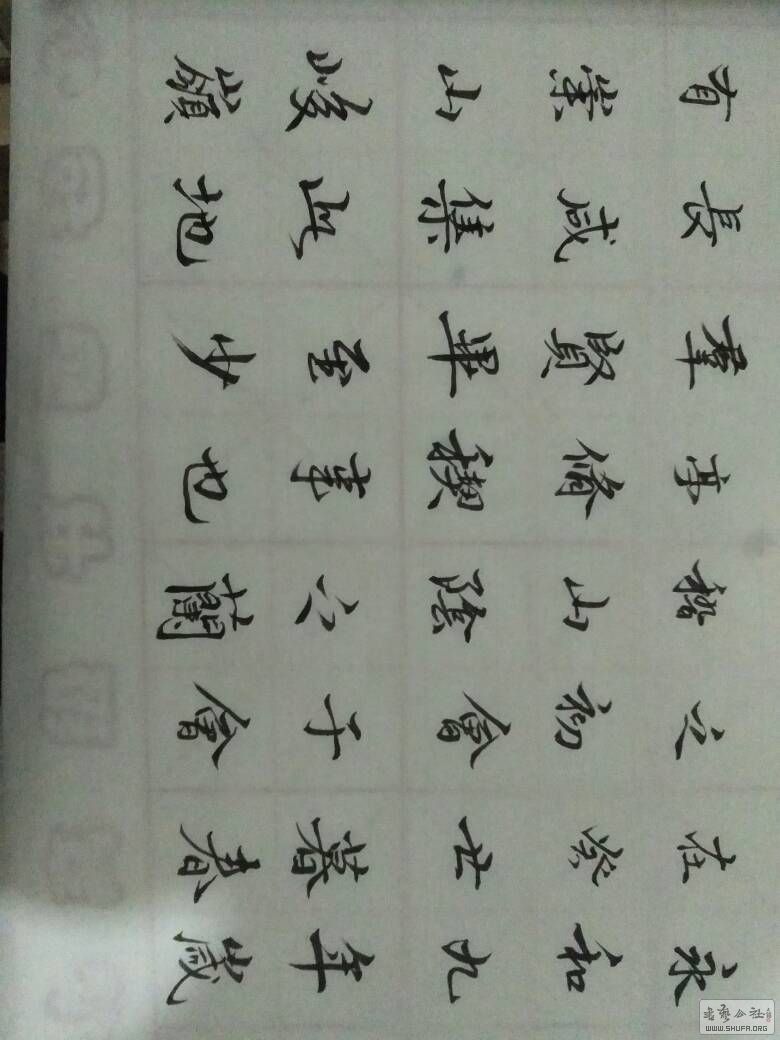 永和九年歲
在癸丑暮春
之初會于會
稽山陰之蘭
亭脩禊事也
羣賢畢至少
長咸集此地
有崇山峻嶺
书艺公社
WWW.SHUFA.ORG